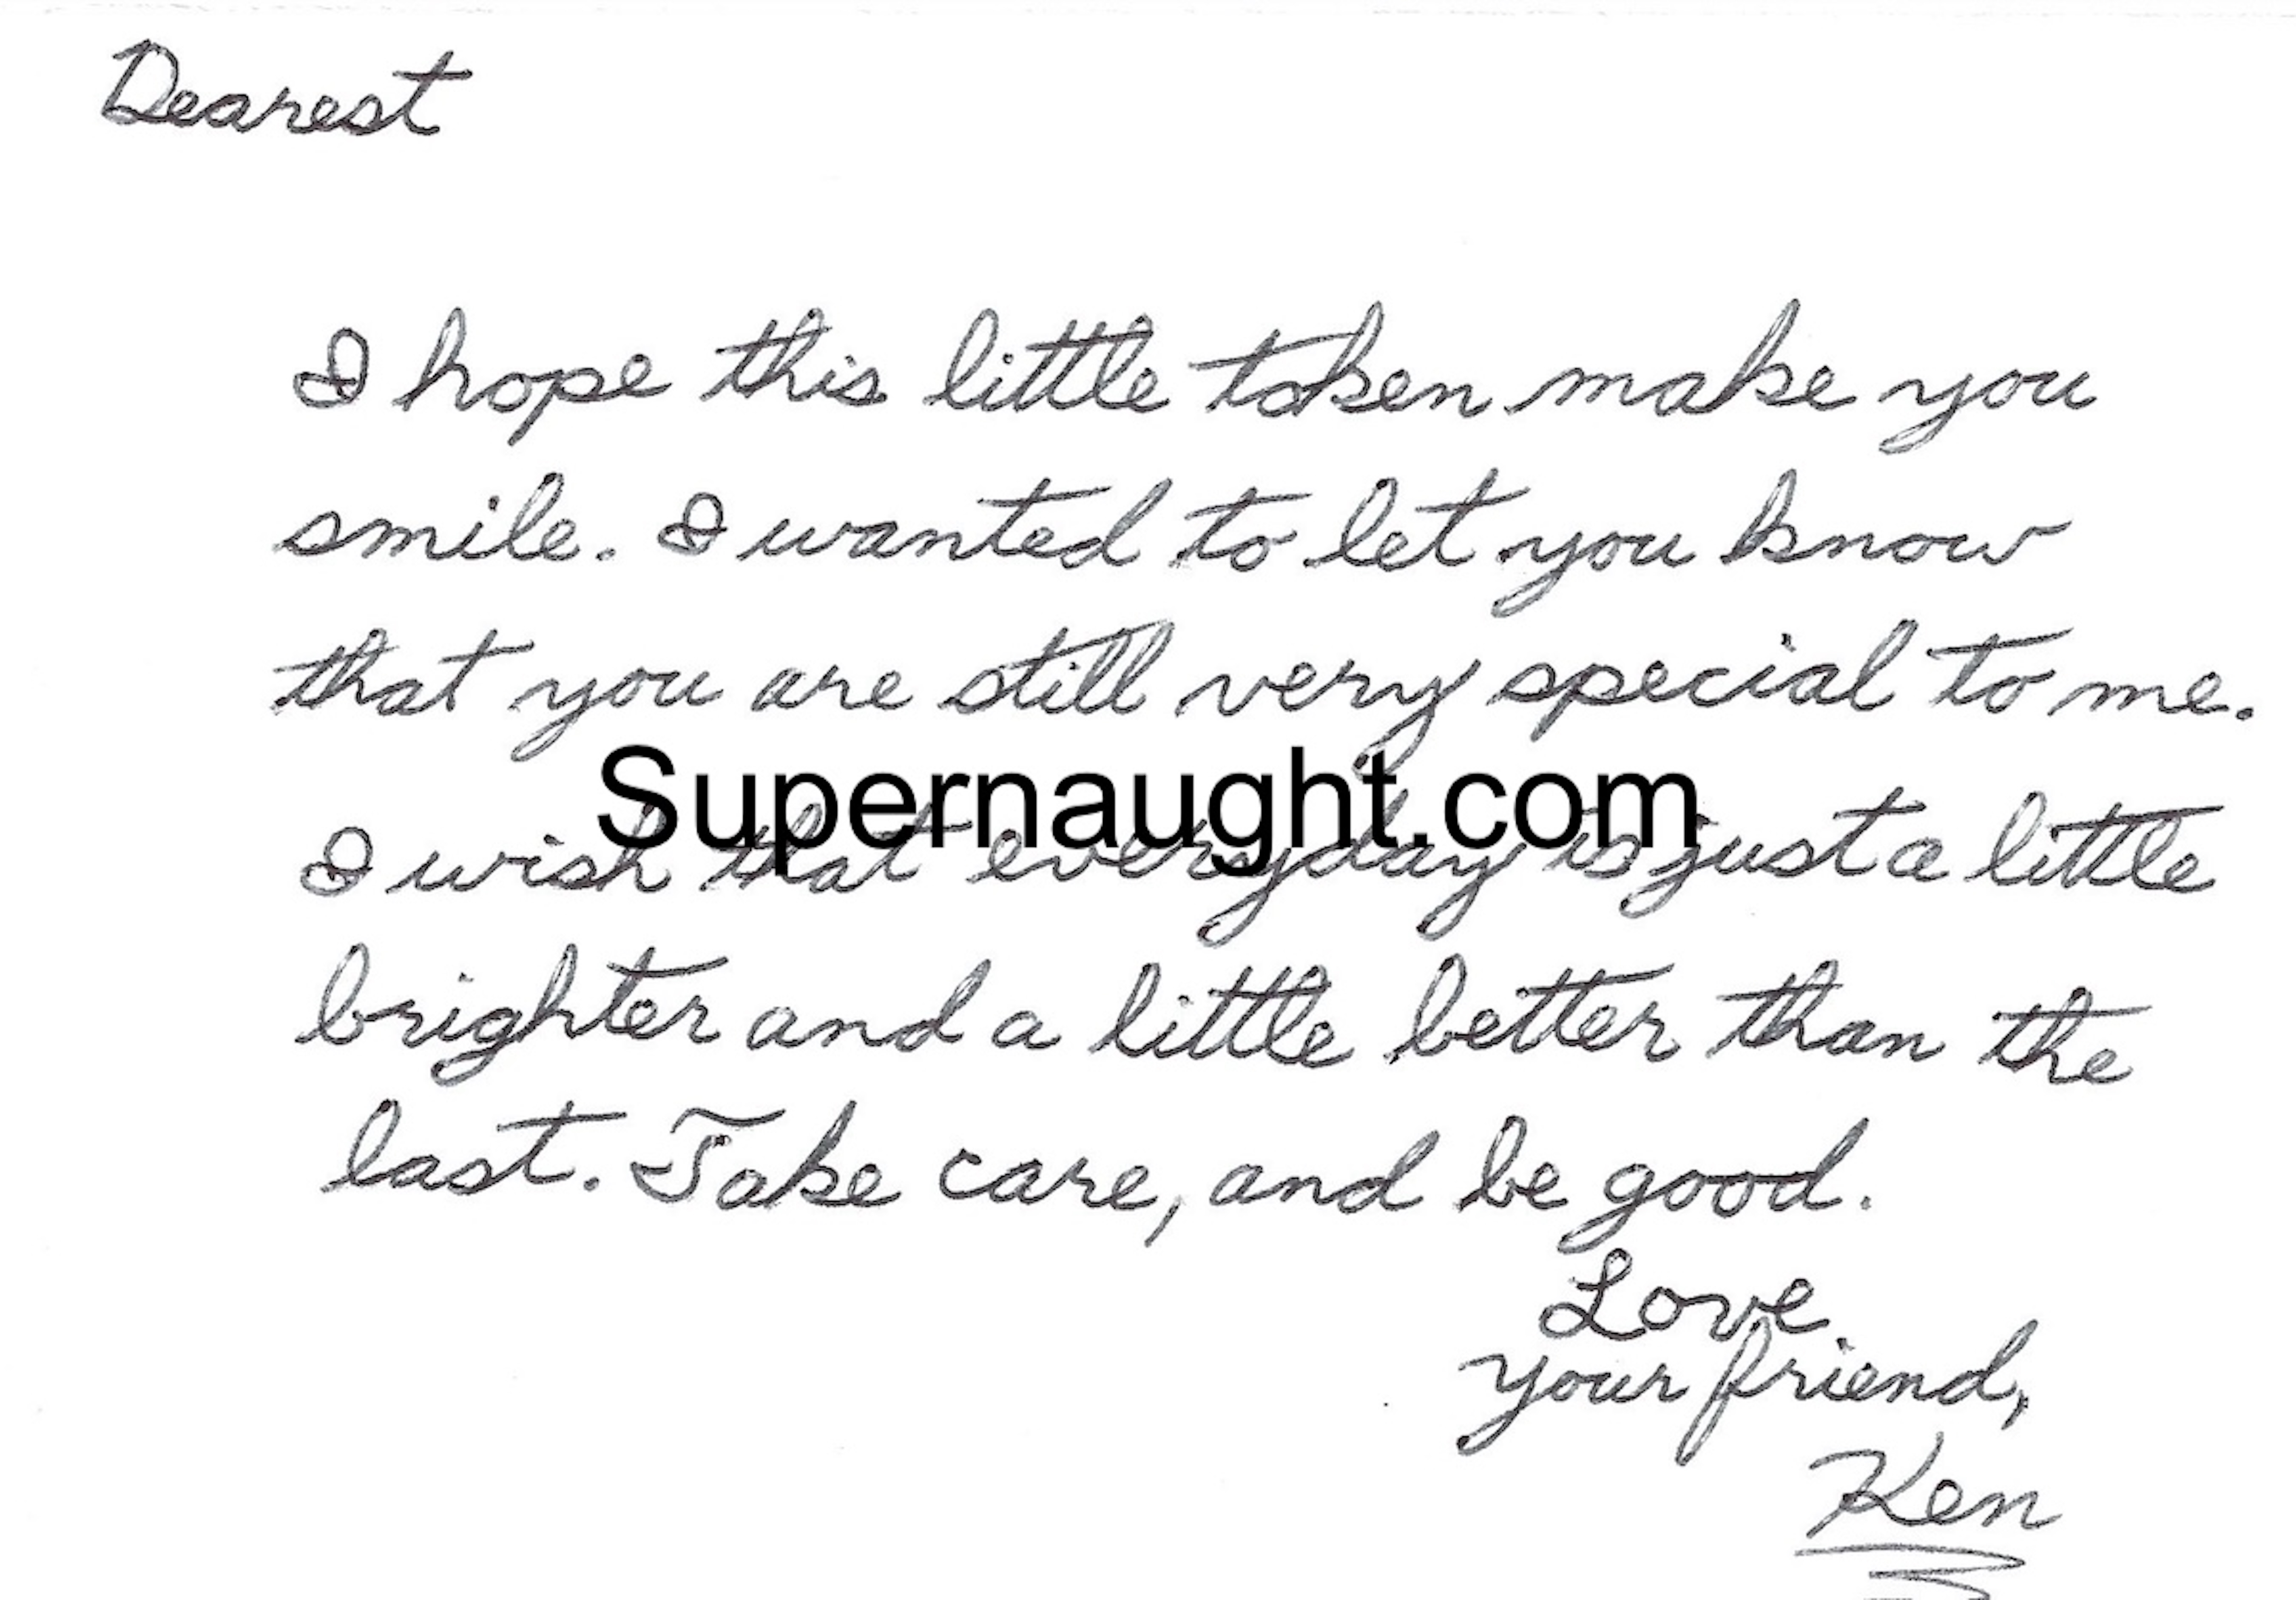 Dearest
I hope this little token make you
smile. I wanted to let you know
that you are still very special to me.
Supernaught.com
I wish that everyday is just a little
brighter and a little better than the
last. Take care, and be good.
Love
your friend,
Ken